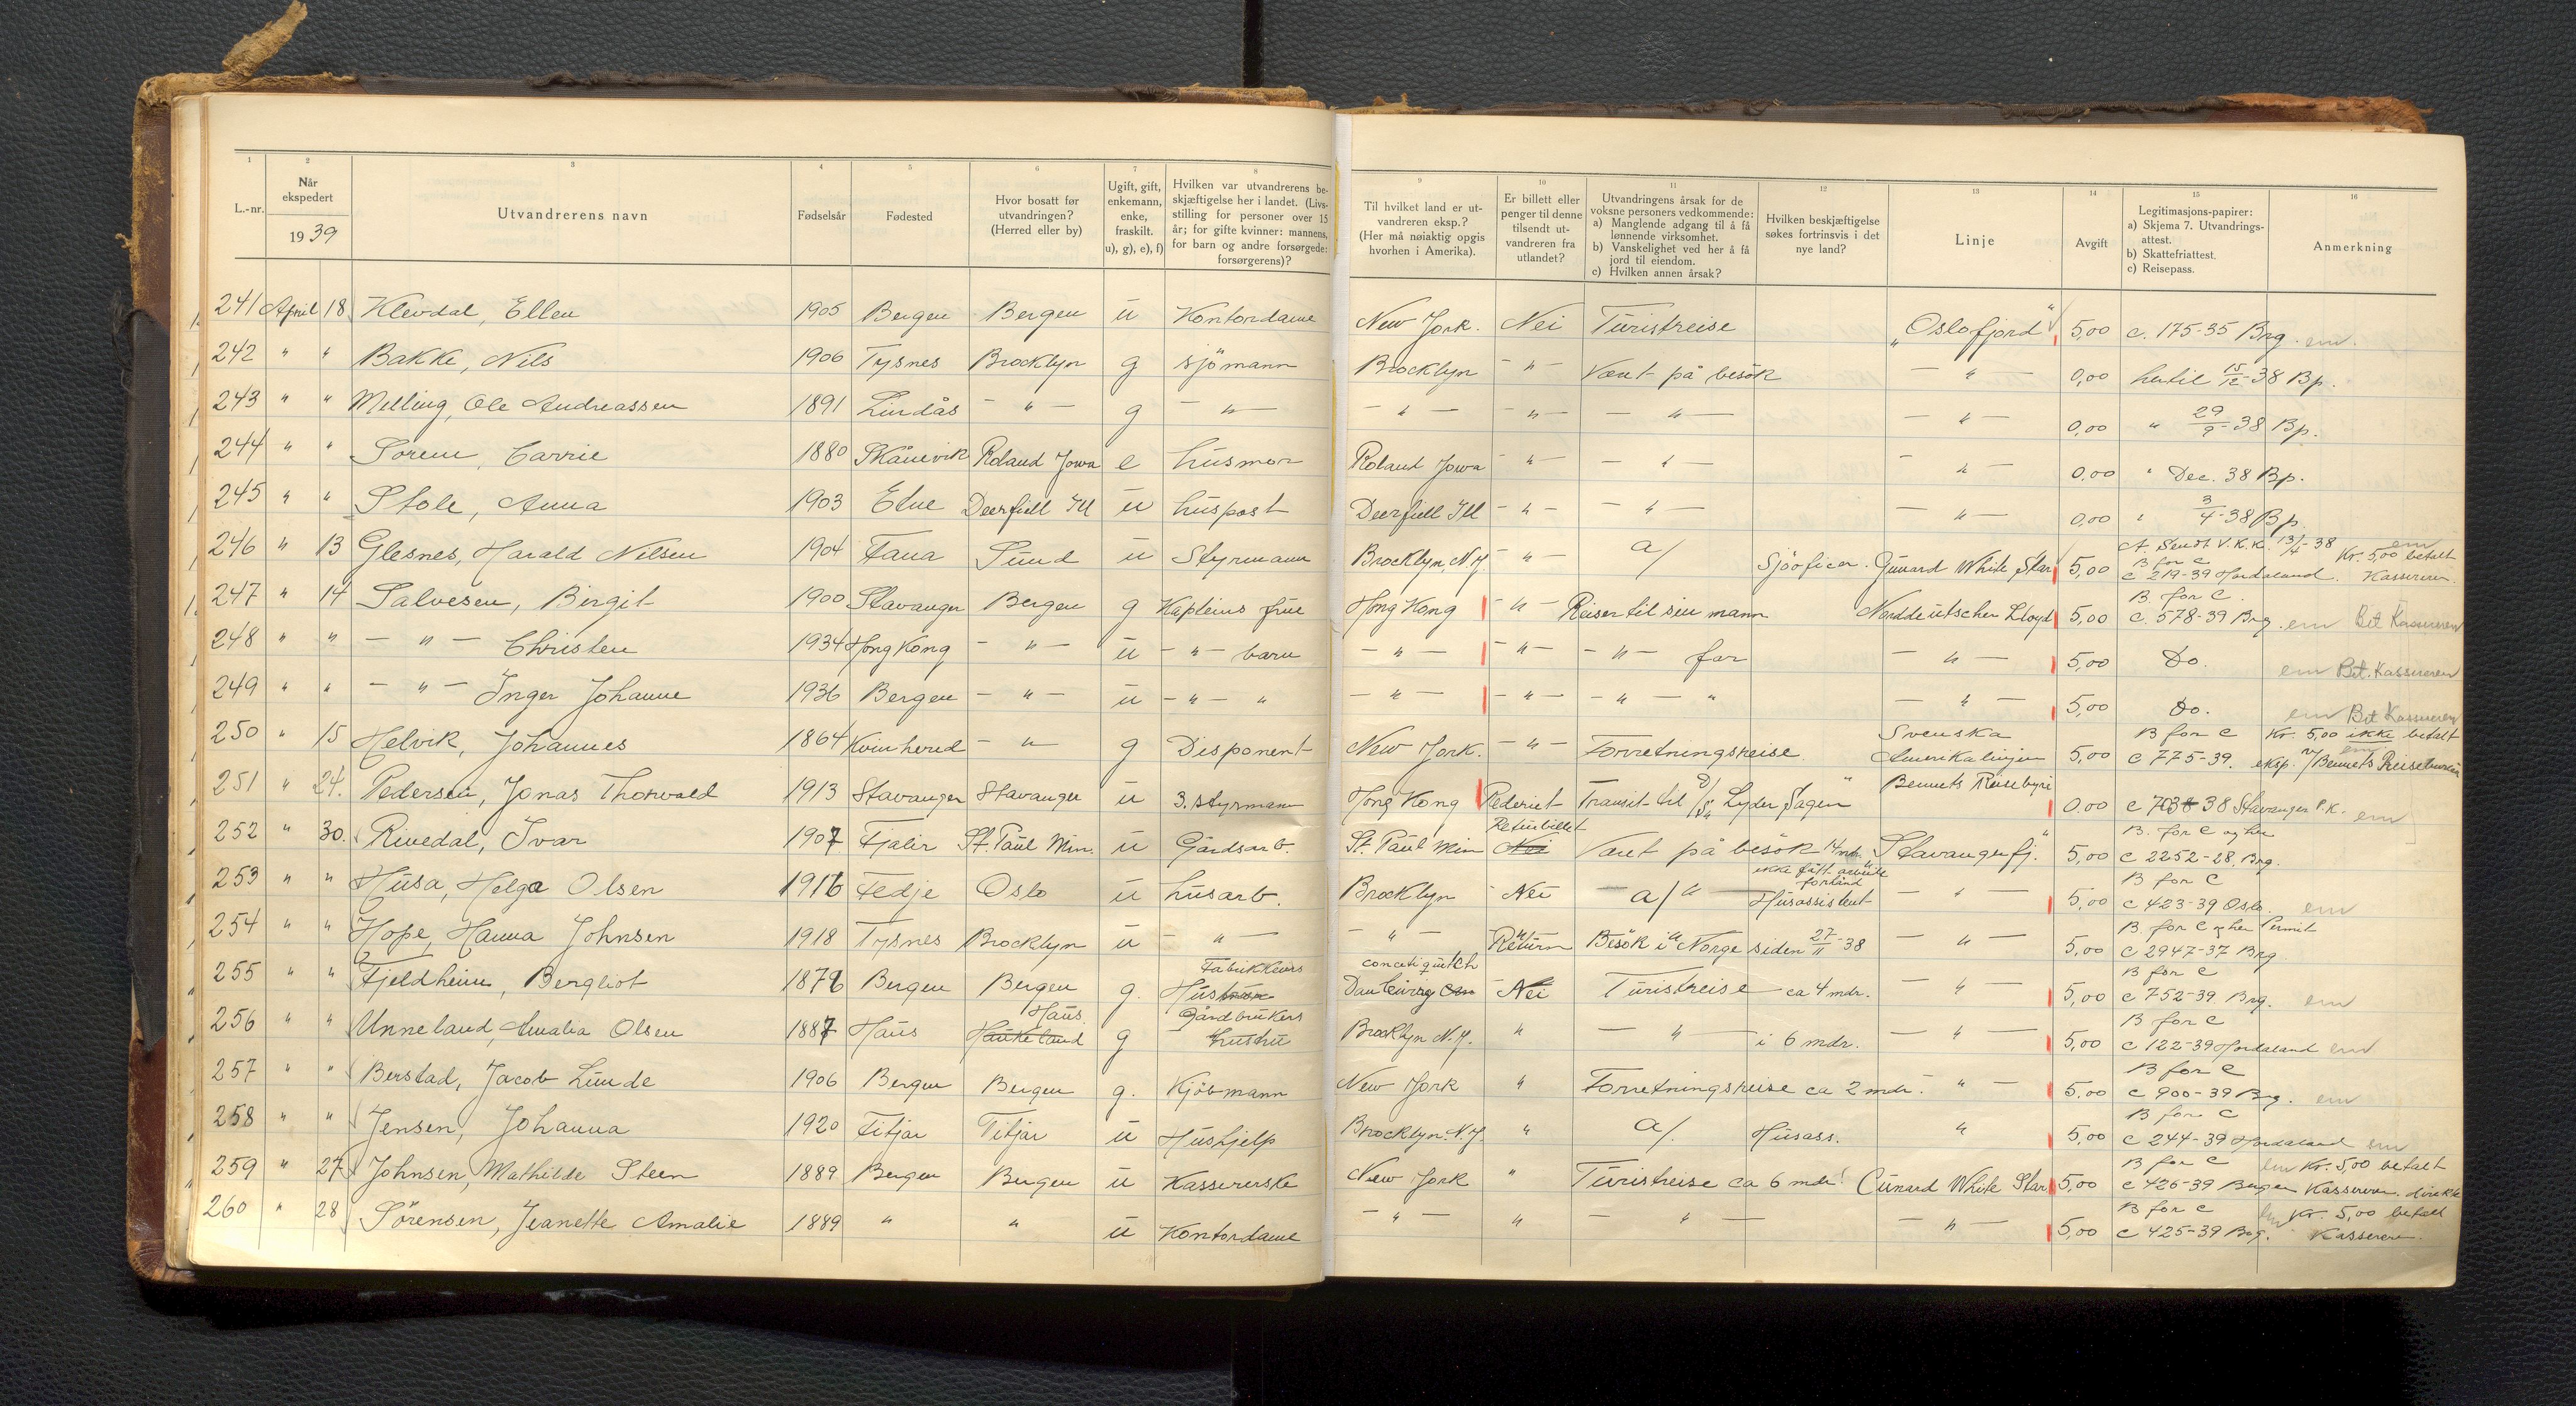 1 2 3 4 5 6 7 8 9 10 11 12 13 14 15 16
L.-nr. Når ekspedert 1939 Utvandrerens navn Fødselsår Fødested Hvor bosatt før utvandringen? (Herred eller by) Ugift, gift, enkemann, enke, fraskilt. u), g), e), f) Hvilken var utvandrerens beskjæftigelse her i landet. (Livsstilling for personer over 15 år; for gifte kvinner: mannens, for barn og andre forsørgede: forsørgerens)? Til hvilket land er utvandreren eksp.? (Her må nøiaktig opgis hvorhen i Amerika). Er billett eller penger til denne tilsendt utvandreren fra utlandet? Utvandringens årsak for de voksne personers vedkommende: a) Manglende adgang til å få lønnende virksomhet. b) Vanskelighet ved her å få jord til eiendom. c) Hvilken annen årsak? Hvilken beskjæftigelse søkes fortrinsvis i det nye land? Linje Avgift Legitimasjons-papirer: a) Skjema 7. Utvandrings-attest. b) Skattefriattest. c) Reisepass. Anmerkning
241 April 18 Klevdal, Ellen 1905 Bergen Bergen u Kontordame New York. Nei Turistreise "Oslofjord" 5,00 c. 175-35 Brg. em.
242 " " Bakke, Nils 1906 Tysnes Brocklyn g sjömann Brocklyn - " - Vært på besök - " - 0,00 hertil 15/12-38 Bp.
243 " " Melling, Ole Andreassen 1891 Lindås - " - g - " - - " - - " - - " - - " - 0,00 " 29/9-38 Bp.
244 " " Sörem, Carrie 1880 Skånevik Roland Jowa e husmor Roland Jowa - " - - " - - " - 0,00 " Dec. 38 Bp.
245 " " Stole, Anna 1903 Etne Deerfiell Ill u huspost Deerfiell Ill - " - - " - - " - 0,00 " 3/4-38 Bp.
246 " 13 Glesnes, Harald Nilsen 1904 Fana Sund u Styrmann Brocklyn, N.Y. - " - a/ Sjöoficer. Cunard White Star 5,00 A. Sendt V.K.K. 13/4-38 B for c c 219-39 Hordaland. em Kr. 5,00 betalt Kassereren.
247 " 14 Salvesen, Birgit 1900 Stavanger Bergen g Kapteins frue Hong Kong - " - Reiser til sin mann Norddeutscher Lloyd 5,00 B. for c. c. 578-39 Brg. em Bet Kassereren
248 " " - " - Christen 1934 Hong Kong - " - u - " - barn - " - - " - - " - far - " - 5,00 Do. em Bet. Kassereren
249 " " - " - Inger Johanne 1936 Bergen - " - u - " - " - " - - " - - " - " - " - 5,00 Do. em Bet Kassereren
250 " 15 Helvik, Johannes 1864 Kvinherred - " - g Disponent New York. - " - Forretningsreise. Svenska Amerikalinjen 5,00 B for c c 775-39. Kr. 5,00 ikke betalt em eksp. v/ Bennets Reisebureau
251 " 24. Pedersen, Jonas Thorvald 1913 Stavanger Stavanger u 3. styrmann Hong Kong Rederiet Transit til D/S "Lyder Sagen" Bennets Reisebyrå 0.00 c 703 38 Stavanger P.K. em
252 " 30. Rivedal, Ivar 1907 Fjaler St. Paul Min. u Gårdsarb. St. Paul Min Returbillet Nei Vært på besök 14 mdr. "Stavangerfj." 5,00 B. for c og her c 2252-28, Brg.
253 " " Husa, Helga Olsen 1916 Fedje Oslo u husarb. Brocklyn Nei - a/ " - ikke fått arbeide forhånd Husassistent - " - 5,00 B for c c 423-39 Oslo em
254 " " Hope, Hanna Johnsen 1918 Tysnes Brocklyn u - " - - " - Return Besök i Norge siden 27/11-38 - " - 5,00 B. for c og her Permit c 2947-37 Brg
255 " " Fjeldheim, Bergliot 1876 Bergen Bergen g. Fabrikkeiers Hustru Nei Turistreise ca 4 mdr. - " - 5,00 B for c c 752-39. Brg. em
256 " " Unneland, Amalia Olsen 1887 Haus Haus Haukeland g Gårdbrukers hustru Brocklyn N.Y. " - " - i 6 mdr. - " - 5,00 B for c c 122-39 Hordaland em
257 " " Berstad, Jacob Lunde 1906 Bergen Bergen g. Kjöbmann New York " Forretningsreise ca 2 mdr. - " - 5.00 B for c c 900-39 Brg. em
258 " " Jensen, Johanna 1920 Fitjar Fitjar u Hushjelp Brocklyn. N.Y. " a/. Husass. " 5,00 B for c c 244-39 Hordaland em
259 " 27 Johnsen, Mathilde Steen 1889 Bergen Bergen u Kassererske New York " Turistreise ca 6 mdr! Cunard White Star 5,00 B for c c 426-39 Bergen em Kr. 5,00 betalt Kassereren direkte
260 " 28 Sörensen, Jeanette Amalie 1889 " " u Kontordame - " - " - " - - " - 5,00 B for c c 425-39 Brg. em Kr. 5,00 betalt Kassereren.